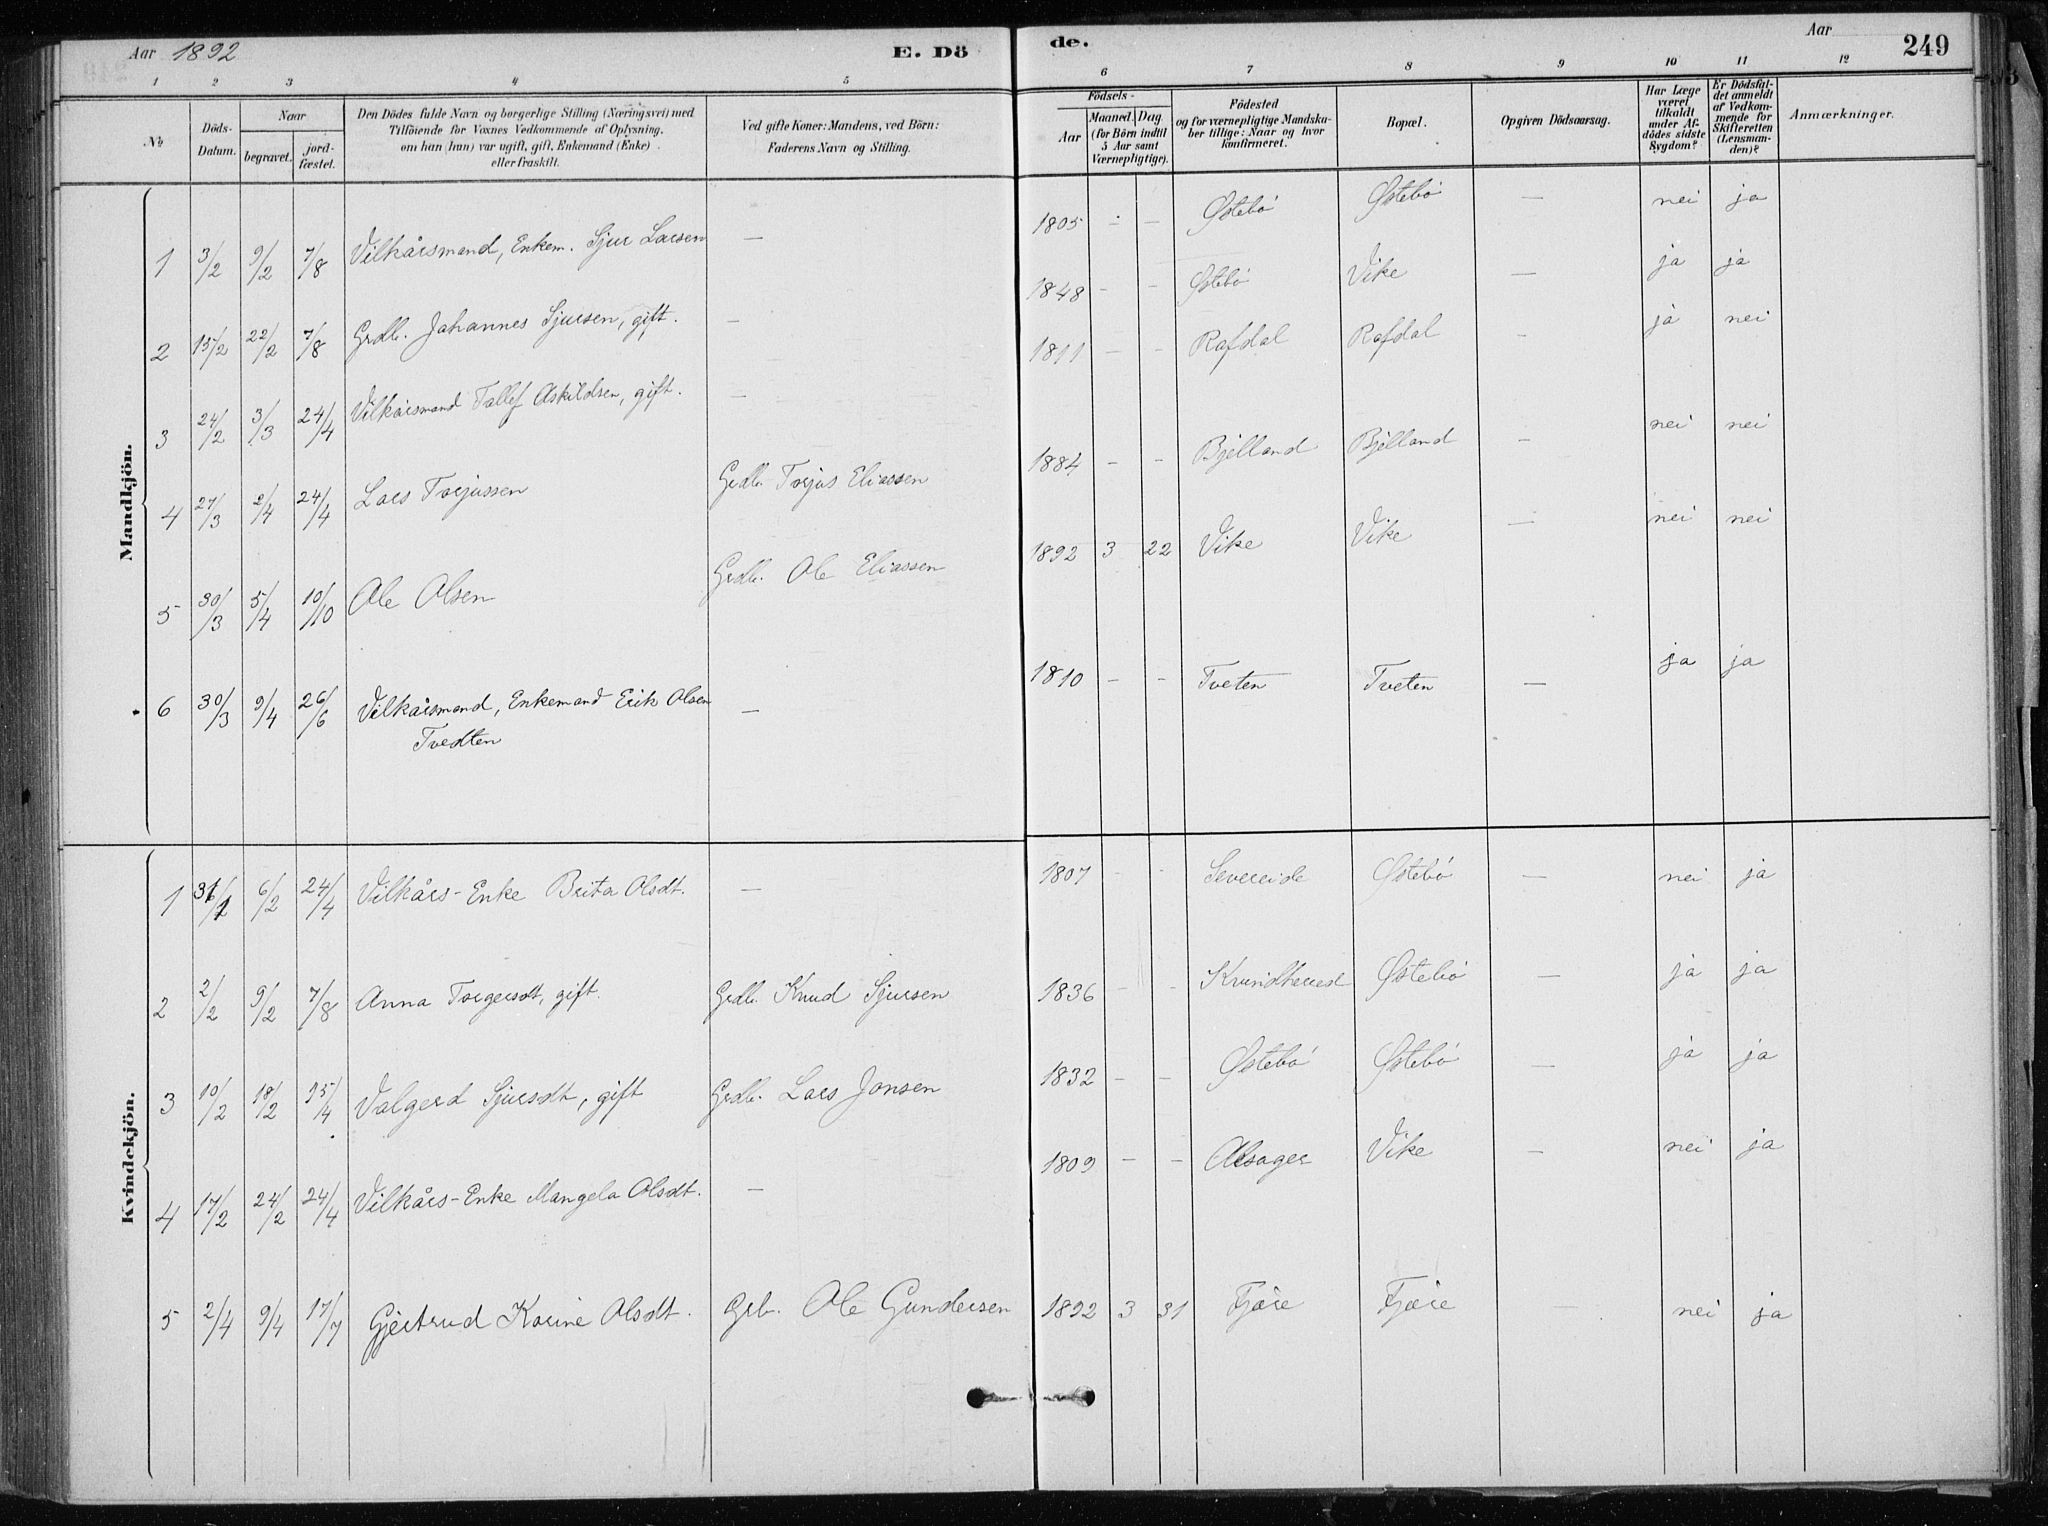 Aar 1892
E. Dö
de.
Aar
249
1 2 3 4 5 6 7 8 9 10 11 12
No
Döds-Datum.
Naar
begravet.
jord-fæstet.
Den Dödes fulde Navn og borgerlige Stilling (Næringsvei) med
Tilföiende for Voxnes Vedkommende af Oplysning.
om han (hun) var ugift, gift, Enkemand (Enke)
eller fraskilt.
Ved gifte Koner: Mandens, ved Börn:
Faderens Navn og Stilling.
Födsels-
Aar
Maaned. Dag.
(for Börn indtil
5 Aar samt
Værnepligtige).
Födested
og for værnepligtige Mandska-
ber tillige: Naar og hvor
konfirmeret.
Bopæl.
Opgiven Dödsaarsag.
Har Læge
været
tilkaldt
under Af-
dödes sidste
Sygdom?
Er Dödsfal-
det anmeldt
af Vedkom-
mende for
Skifteretten
(Lensman-
den)?
Anmærkninger.
Mandkjön.
1 3/2 9/2 7/8 Vilkårsmand, Enkem. Sjur Larsen — 1805 - — Østebø Østebø — nei ja
2 15/2 22/2 7/8 Grdb. Johannes Sjursen, gift. — 1848 - — Østebø Vike — ja ja
3 24/2 3/3 24/4 Vilkårsmand Tallef Askildsen, gift. — 1811 — - Rafdal Rafdal - ja nei
4 27/3 2/4 24/4 Lars Torjussen Grdb. Torjus Eliassen 1884 - - Bjelland Bjelland - nei nei
5 30/3 5/4 10/10 Ole Olsen Grdb. Ole Eliassen 1892 3 22 Vike Vike — nei nei
6 30/3 9/4 26/6 Vilkårsmand, Enkemand Erik Olsen — 1810 - - Tveten Tveten — ja ja
Tvedten
Kvindekjön.
1 31/1 6/2 24/4 Vilkårs-Enke Brita Olsdt. — 1807 - - Severeide Østebø — nei ja
2 2/2 9/2 7/8 Anna Torgersdt, gift. Grdb. Knud Sjursen 1836 - - Kvindherred Østebø — ja ja
3 10/2 18/2 25/4 Valgerd Sjursdt, gift Grdb. Lars Jonsen 1832 - — Østebø Østebø — ja ja
4 17/2 24/2 24/4 Vilkårs-Enke Mangela Olsdt. — 1809 — - Alsager Vike — nei ja
5 2/4 9/4 17/7 Gjertrud Karine Olsdt. Grb. Ole Gundersen 1892 3 31 Fjære Fjære — nei ja